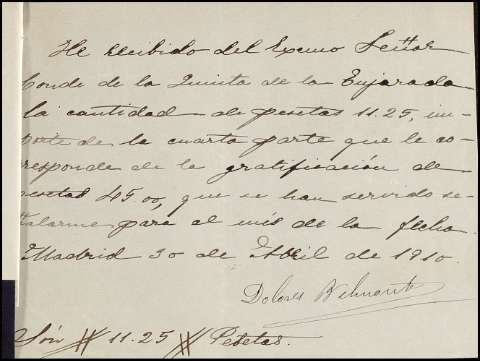 He recibido del Excmo Señor
Conde de la Quinta de la Enjarada
la cantidad de pesetas 11.25, im-
porte de la cuarta parte que le co-
rresponde de la gratificación de
pesetas 45 00, que se han servido se-
ñalarme para el mes de la fecha.
Madrid 30 de Abril de 1910.
Dolores Belmonte
Són # 11.25 # Pesetas.